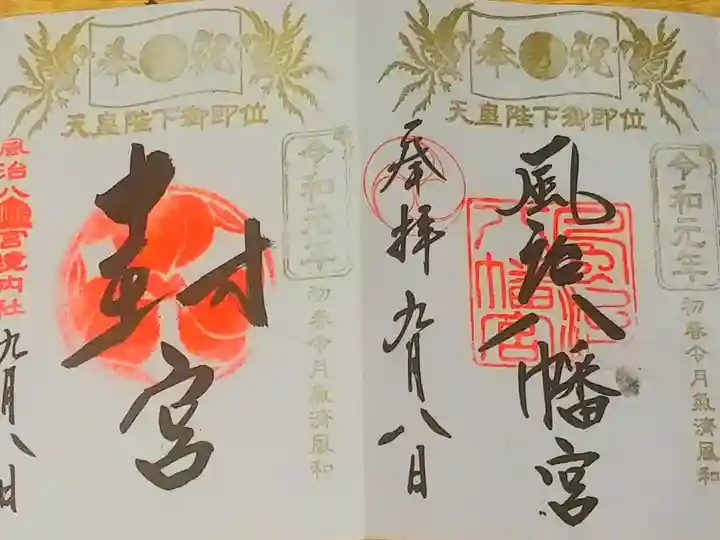 奉祝
天皇陛下御即位
令和元年
初春令月氣淑風和
風治八幡宮
奉拝
九月八日
奉祝
天皇陛下御即位
令和元年
初春令月氣淑風和
宮
風治八幡宮境内社
九月八日